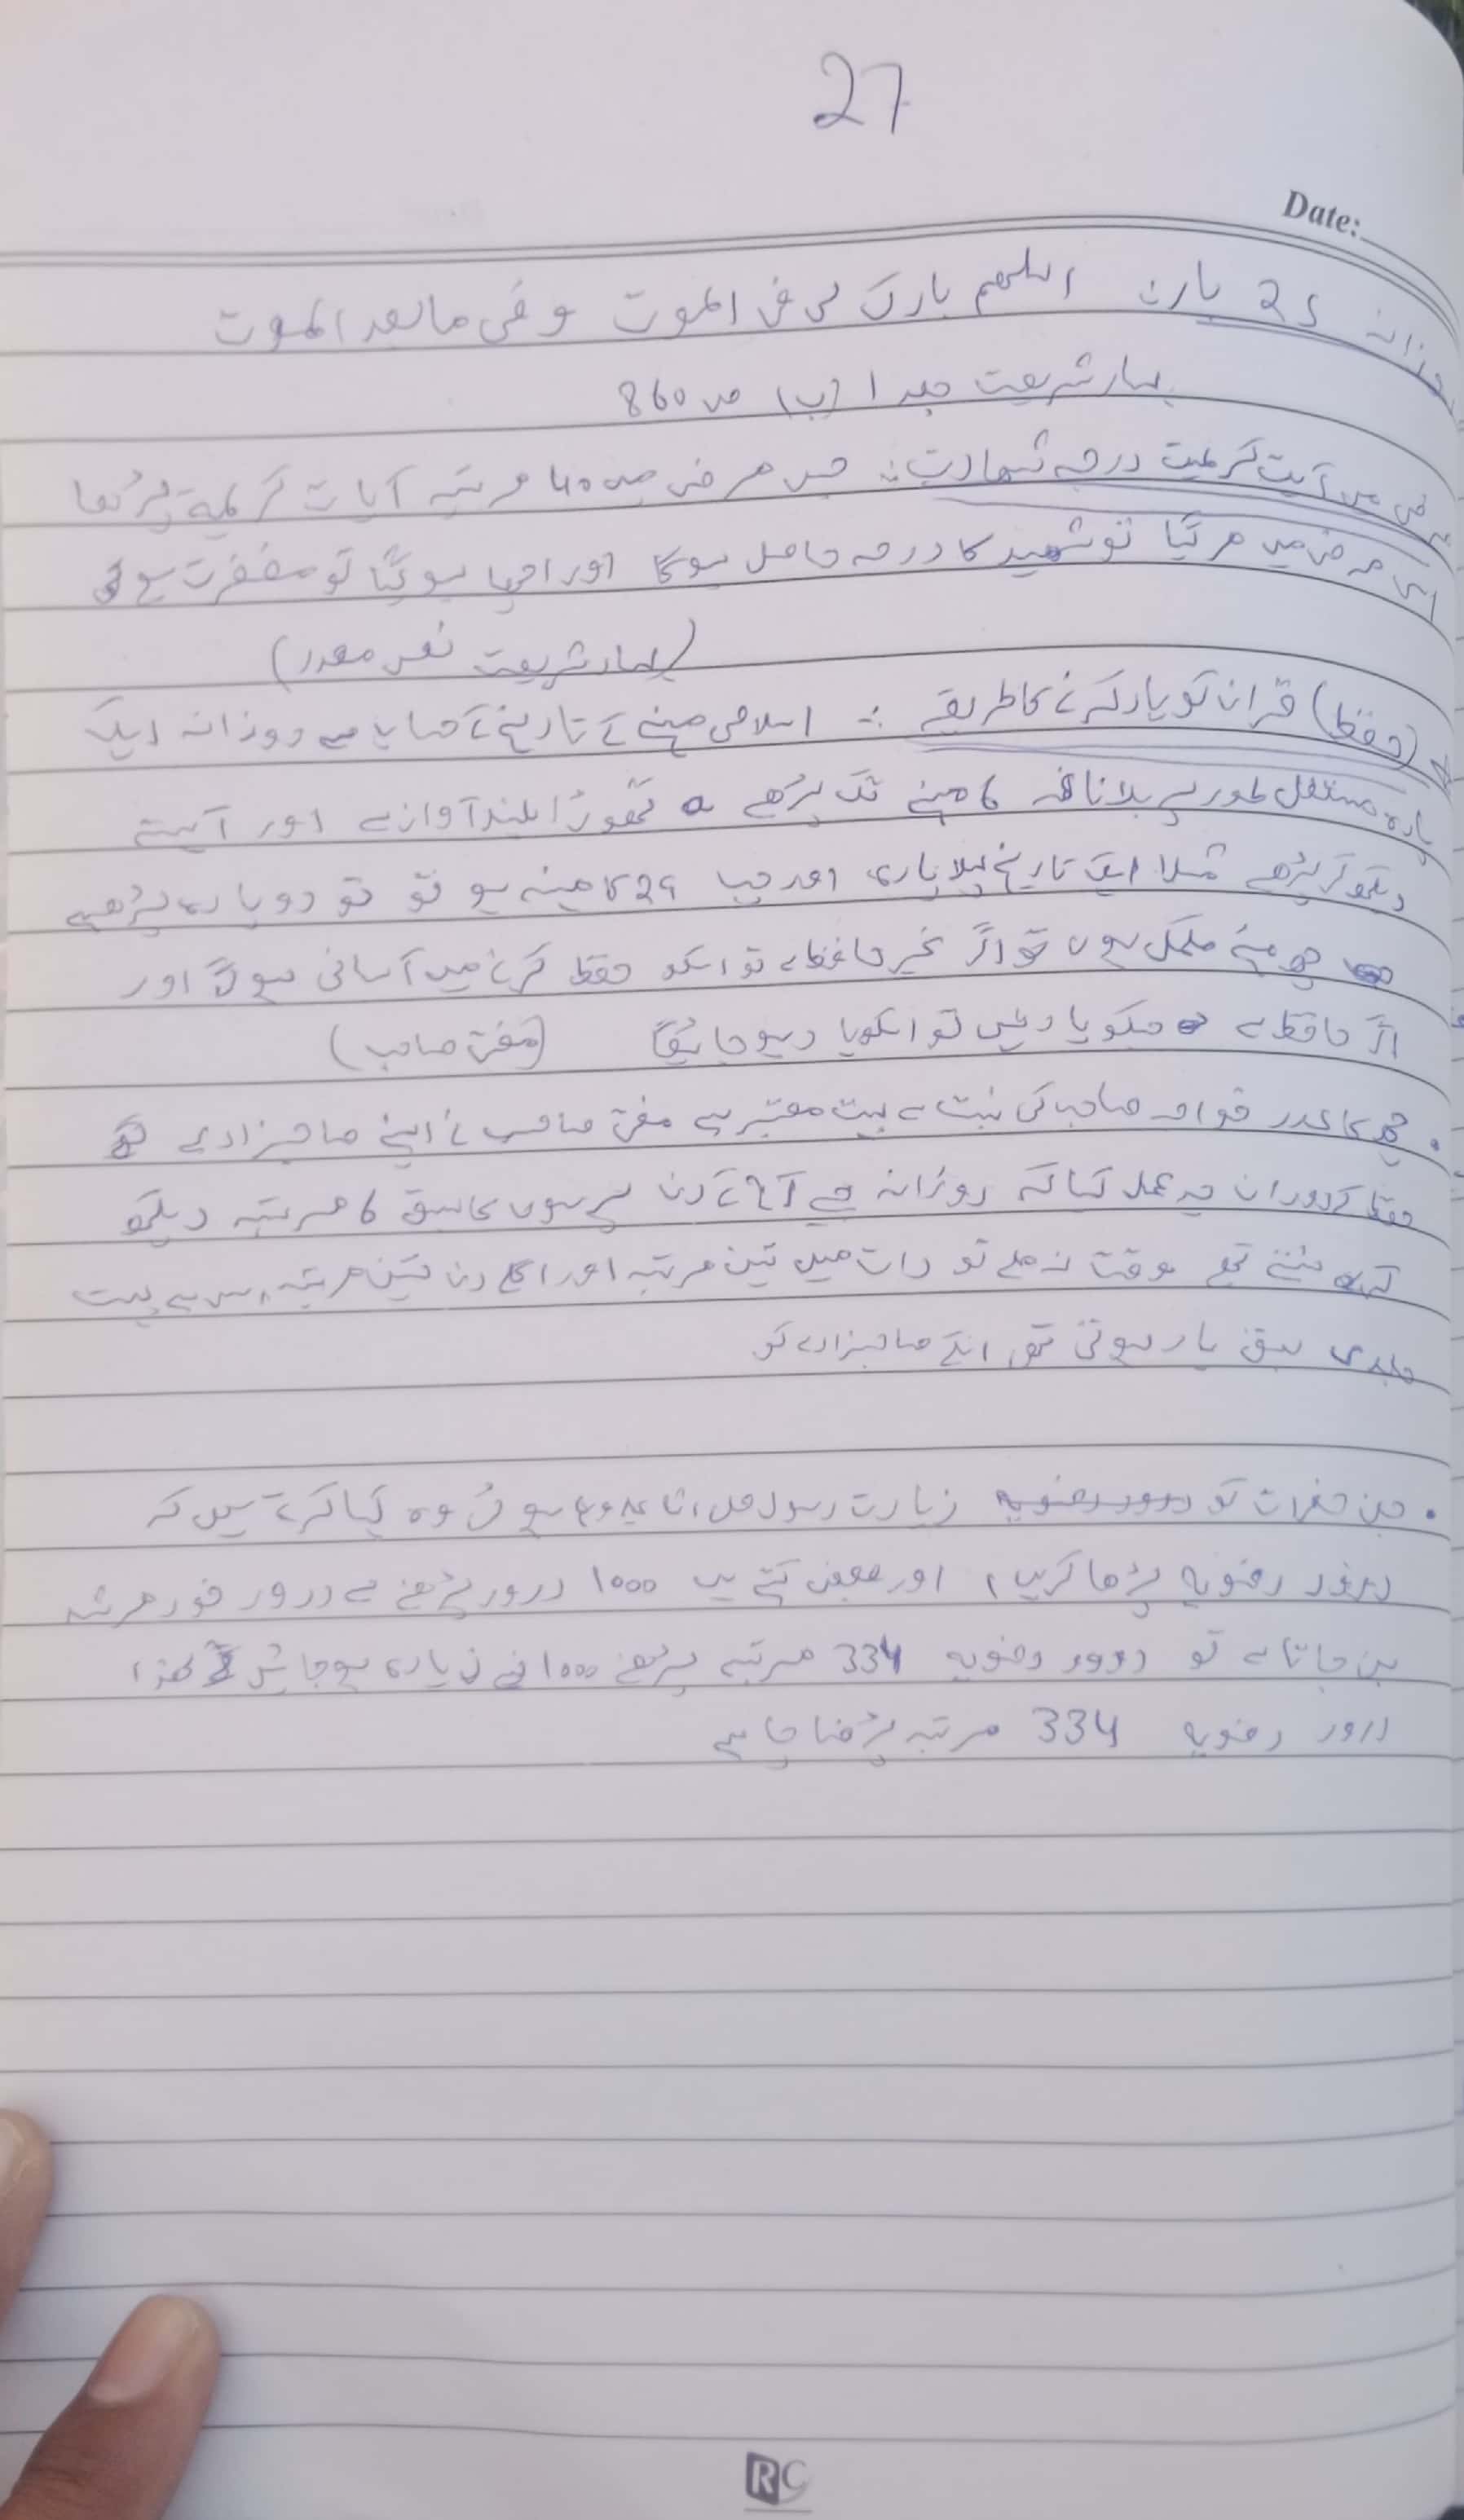 27
Date:
روزانہ 25 بار:۔ اللھم بارک لی فی الموت و فی ما بعد الموت
بہار شریعت جلد 1 (ب) ص 860
مرض میں آیت کریمہ درجہ شہادت:۔ جس مرض میں 40 مرتبہ آیات کریمہ پڑھا
اسی مرض میں مر گیا تو شہید کا درجہ حاصل ہوگا اور اچھا ہو گیا تو مغفرت ہوگی
(بہار شریعت
(حفظ) قران کو یاد کرنے کا طریقہ :۔ اسلامی مہینے کے تاریخ کے حساب سے روزانہ ایک
پارہ مستقل طور پے بلا ناغہ 6 مہینے تک پڑھے تھوڑا بلند آواز سے اور آہستہ
دیکھ کر پڑھے مثلا ایک تاریخ پہلا پارہ اور جب 29 کا مہینہ ہو تو تو دو پارے پڑھے
چھ مہنے مکمل ہوں تو اگر غیر حافظ ہے تو اسکو حفظ کرنے میں آسانی ہوگی اور
اگر حافظ ہے جسکو یاد نہیں تو اسکو یاد ہو جائیگا (مفتی صاحب)
• چھ کا عدد خواجہ صاحب کی نسبت سے بہت معتبر ہے مفتی صاحب نے اپنے صاحبزادے
حفظ کے دوران یہ عمل کیا کہ روزانہ دن سبق 6 مرتبہ دیکھ
کر سنتے تھے وقت نہ ملے تو رات میں تین مرتبہ اور اگلے دن تین مرتبہ اس سے بہت
جلدی سبق یاد ہوتی تھی انکے صاحبزادے کو
• جن حضرات کو درود رضویہ زیارت رسول صلی اللہ علیہ وسلم ہوئی وہ کہا کرتے ہیں کہ
درود رضویہ پڑھا کریں، اور بعض کہتے ہیں 1000 درود پڑھنے سے درود خود مرشد
بن جاتا ہے تو درود رضویہ 334 مرتبہ پڑھنے 1000 سے زیادہ ہو جائیں گے لھذا
درود رضویہ 334 مرتبہ پڑھنا چاہیے
RC